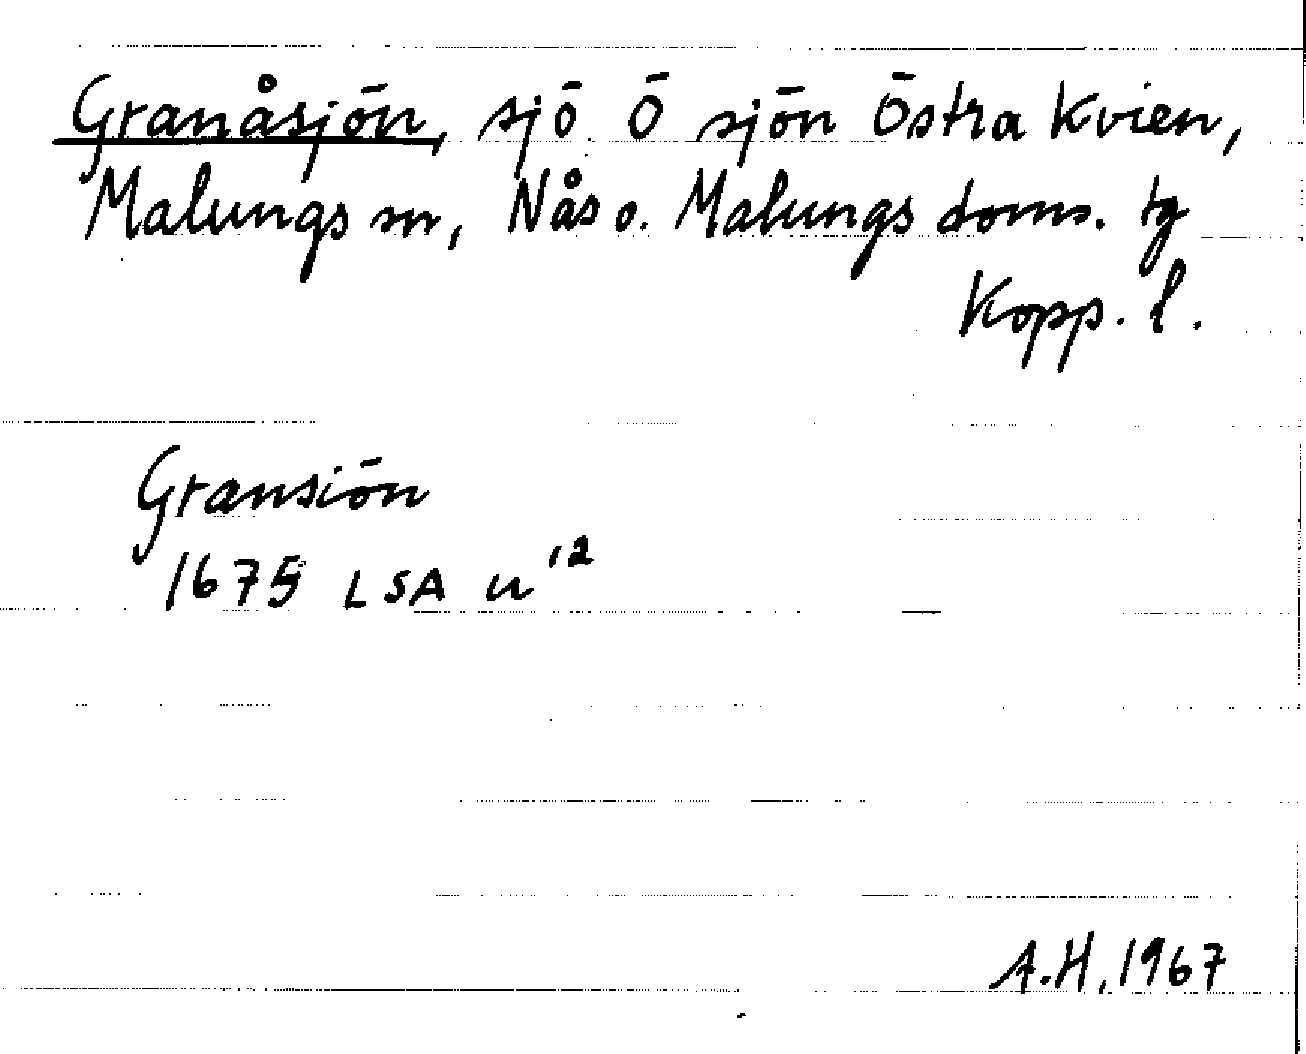 Granåsjön, sjö Ö sjön Östra Kvien,
Malungs sn, Nås o. Malungs doms. tg
Kopp. l.
Gransiön
1675 LSA u 12
A.H. 1967